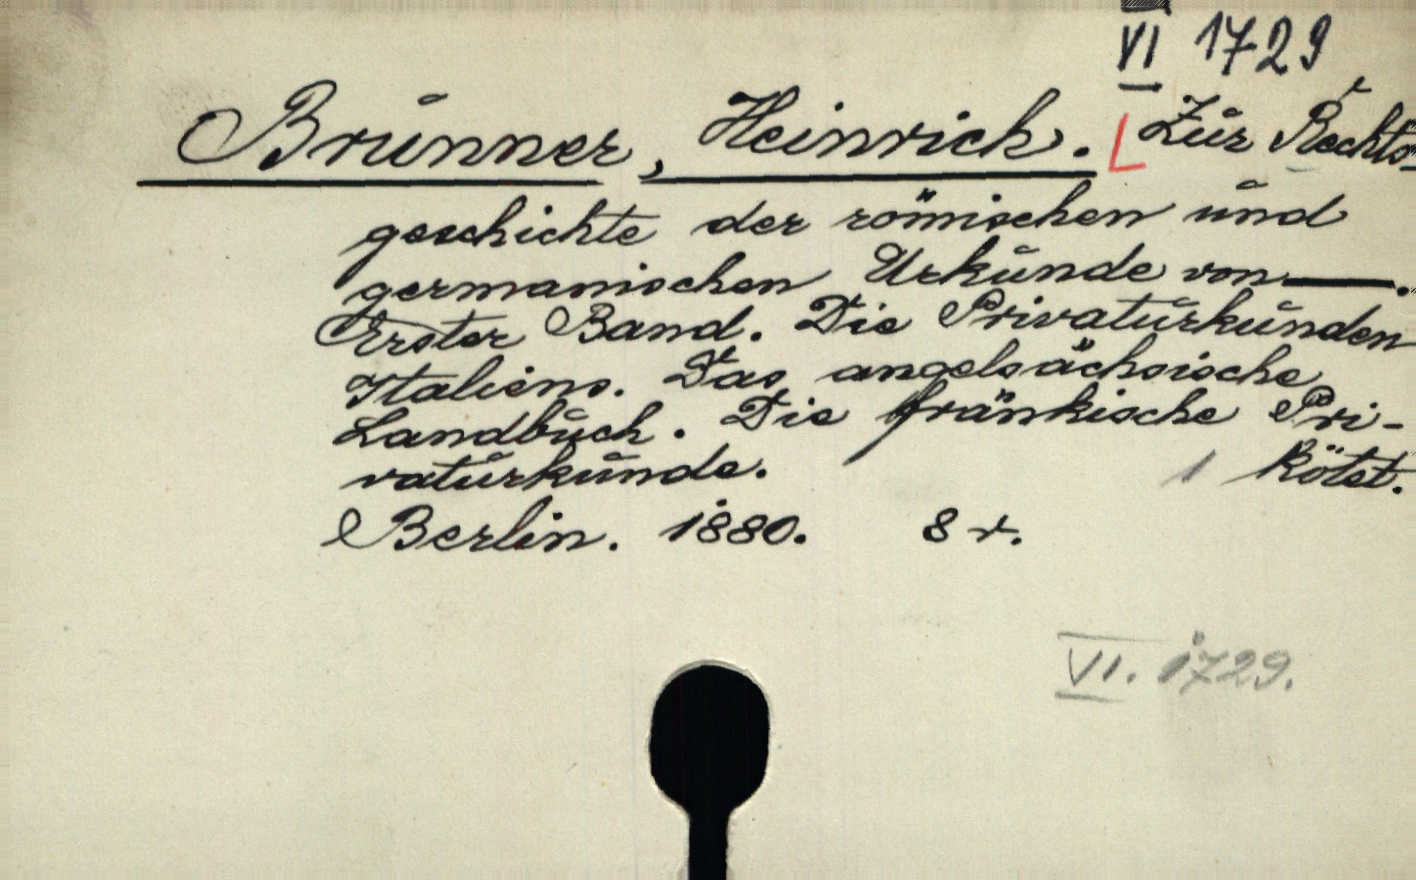 VI 1729
Brunner, Heinrich. [Zur Rechts-
geschichte der römischen und
germanischen Urkunde von —.
Erster Band. Die Privaturkunden
Italiens. Das angelsächsische
Landbuch. Die fränkische Pri-
vaturkunde.
1 Kötet.
Berlin. 1880. 8 r.
VI. 1729.